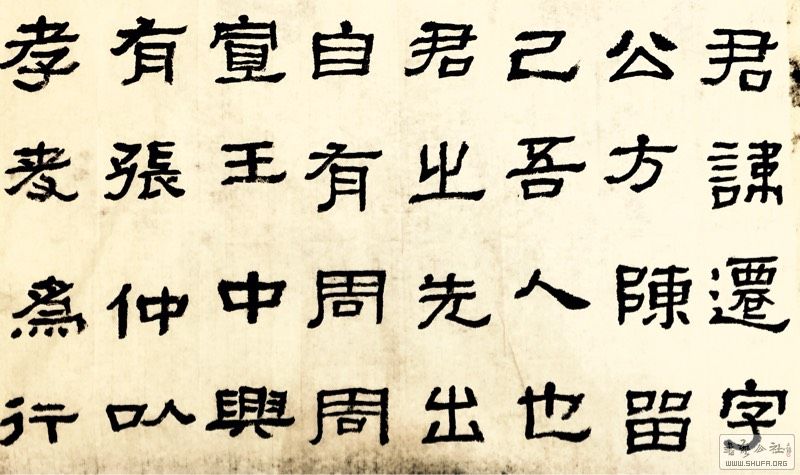 君諱遷字
公方陳留
己吾人也
君之先出
自有周周
宣王中興
有張仲以
孝友為行
WWW.SHUFA.ORG